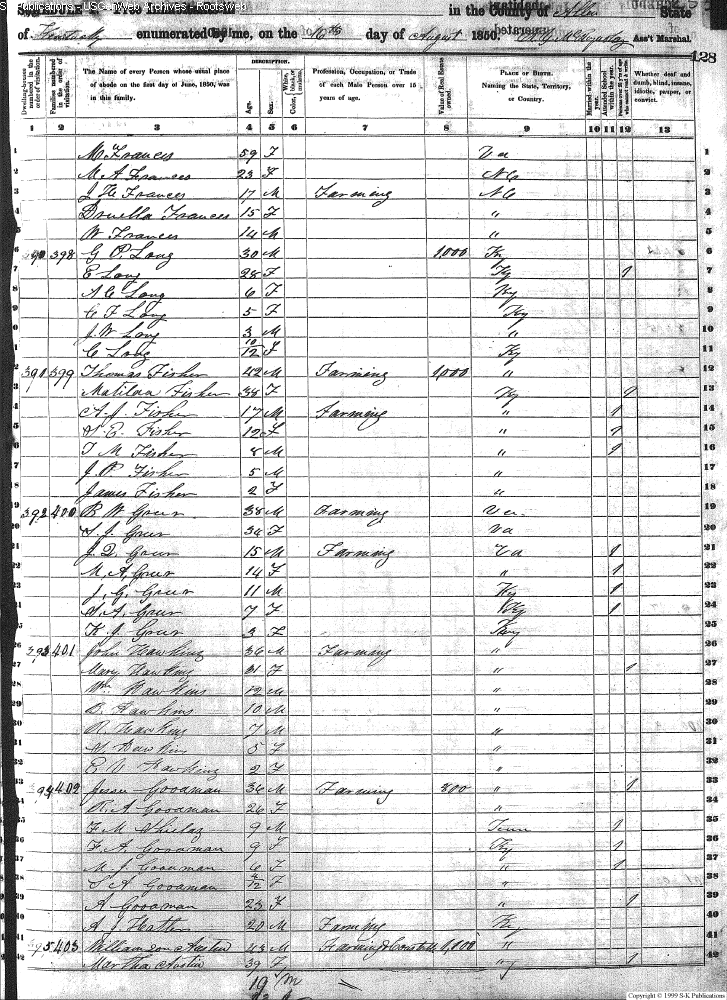 S Publications - USGenWeb Archives - Rootsweb
in the County of Allen State
of Kentucky enumerated by me, on the 16th day of August 1850. Ass't Marshal.
128
Dwelling-houses numbered in the order of visitation.
Families numbered in the order of visitation.
The Name of every Person whose usual place of abode on the first day of June, 1850, was in this family.
DESCRIPTION.
Age.
Sex.
White, black, or mulatto.
Color,
Profession, Occupation, or Trade of each Male Person over 15 years of age.
Value of Real Estate owned.
PLACE OF BIRTH. Naming the State, Territory, or Country.
Married within the year.
Attended School within the year.
Whether deaf and dumb, blind, insane, idiotic, pauper, or convict.
1 2 3 4 5 6 7 8 9 10 11 12 13
1 M Frances 59 F Va 1
2 M A Frances 23 F NC 2
3 J H Frances 17 M Farming NC 3
4 Druella Frances 15 F " 4
5 W Frances 14 M " 5
6 398 G P Long 30 M 1000 Ky 6
7 E Long 28 F Ky 1 7
8 A C Long 6 F Ky 8
9 C F Long 5 F Ky 9
10 J W Long 3 M " 10
11 C Long 10/12 F Ky 11
12 391 399 Thomas Fisher 42 M Farming 1,000 " 12
13 Matilda Fisher 38 F Ky 1 13
14 A J Fisher 17 M Farming " 1 14
15 E. Fisher 12 F " 1 15
16 T M Fisher 8 M " 1 16
17 J P Fisher 5 M " 17
18 James Fisher 2 F " 18
19 392 400 B W Greer 38 M Farming Va 19
20 J Greer 34 F Va 20
21 J Q Greer 15 M Farming Va 1 21
22 M A Greer 14 F " 1 22
23 J. G. Greer 11 M Ky 1 23
24 A. Greer 7 F Ky 1 24
25 K J Greer 3 F Ky 25
26 393 401 John Hawkins 36 M Farming " 26
27 Mary Hawkins 31 F " 1 27
28 Wm Hawkins 12 M " 28
29 B. Hawkins 10 M 29
30 R. Hawkins 7 M " 30
31 Hawkins 5 F " 31
32 E V Hawkins 2 F " 32
33 94 402 Jesse Goodman 36 M Farming 800 " 1 33
34 R. A Goodman 26 F " 34
35 F M 9 M Tenn 1 35
36 F A Goodman 9 F Ky 1 36
37 M J Goodman 6 F " 1 37
38 A Goodman /12 F " 38
39 A Goodman 23 F " 1 39
40 A J 20 M Farming Ky 40
41 95 403 Williamson Austin 43 M Farming & 1,000 " 41
42 Martha Austin 39 F " 1 42
19 M
Copyright © 1999 S-K Publications